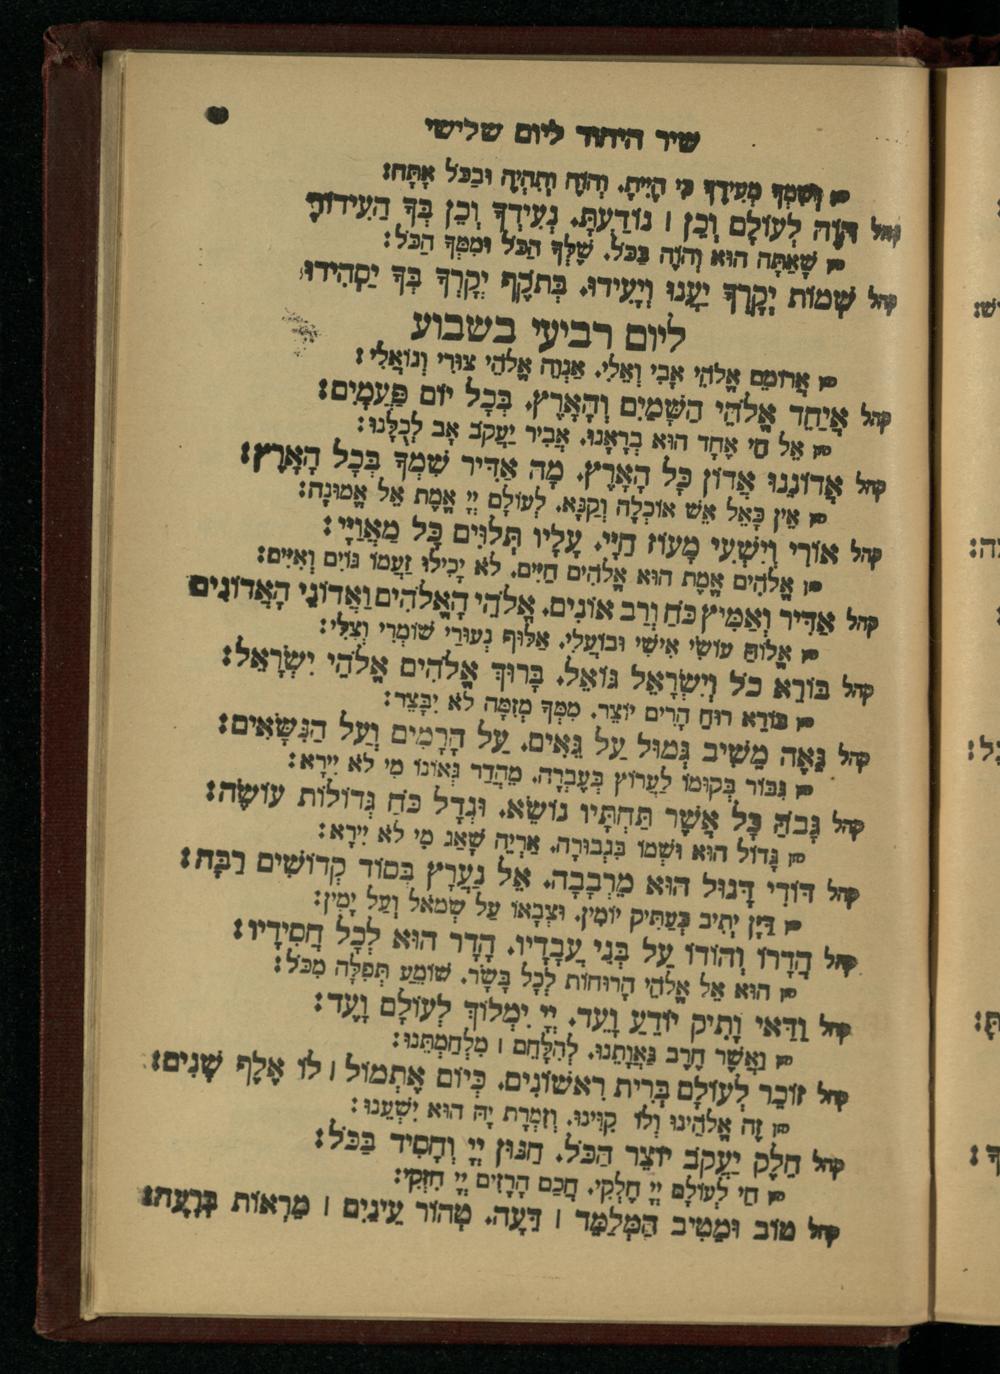 שיר היחוד ליום שלישי
חז וְשִׁמְךָ מְעִידְךָ כִּי הָיִיתָ. וְהוֹוֶה וְתִהְיֶה וּבַכֹּל אָתָּה:
קהל הֹוֶה לְעוֹלָם וְכֵן | נוֹדַעְתָּ. נְעִידְךָ וְכֵן בְּךָ הַעִידוֹתָ
חז שֶׁאַתָּה הוּא וְהוֹוֶה בַּכֹּל. שֶׁלְּךָ הַכֹּל וּמִמְּךָ הַכֹּל:
קהל שְׁמוֹת יְקָרְךָ יַעֲנוּ וְיָעִידוּ. בְּתֹקֶף יְקָרְךָ בְּךָ יַסְהִידוּ:
ליום רביעי בשבוע
חז אֲרוֹמֵם אֱלֹהֵי אָבִי וְאֵלִי. אַנְוֶה אֱלֹהֵי צוּרִי וְגוֹאֲלִי:
קהל אֲיַחֵד אֱלֹהֵי הַשָּׁמַיִם וְהָאָרֶץ. בְּכָל יוֹם פַּעֲמָיִם:
חז אֵל חַי אֶחָד הוּא בְרָאָנוּ. אֲבִיר יַעֲקֹב אָב לְכֻלָּנוּ:
קהל אֲדוֹנֵנוּ אֲדוֹן כָּל הָאָרֶץ. מָה אַדִּיר שִׁמְךָ בְּכָל הָאָרֶץ:
חז אֵין כָּאֵל אֵשׁ אוֹכְלָה וְקַנָּא. לְעוֹלָם יְיָ אֱמֶת אֵל אֱמוּנָה:
קהל אוֹרִי וְיִשְׁעִי מָעוֹז חַיָּי. עָלָיו תְּלוּיִם כָּל מַאֲוַיָּי:
חז אֱלֹהִים אֱמֶת הוּא אֱלֹהִים חַיִּים. לֹא יָכִילוּ זַעְמוֹ גּוֹיִם וְאִיִּים:
קהל אַדִּיר וְאַמִּיץ כֹּחַ וְרַב אוֹנִים. אֱלֹהֵי הָאֱלֹהִים וַאֲדוֹנֵי הָאֲדוֹנִים
חז אֱלוֹהַּ עוֹשִׂי אִישִׁי וּבוֹעֲלִי. אַלּוּף נְעוּרַי שׁוֹמְרִי וְצִלִּי:
קהל בּוֹרֵא כֹל וְיִשְׂרָאֵל גּוֹאֵל. בָּרוּךְ אֱלֹהִים אֱלֹהֵי יִשְׂרָאֵל:
חז בּוֹרֵא רוּחַ הָרִים יוֹצֵר. מִמְּךָ מְזִמָּה לֹא יִבָּצֵר:
קהל גֵּאֶה מֵשִׁיב גְּמוּל עַל גֵּאִים. עַל הָרָמִים וְעַל הַנִּשָּׂאִים:
חז גִּבּוֹר בְּקוּמוֹ לַעֲרוֹץ בְּעֶבְרָה. מֵהֲדַר גְּאוֹנוֹ מִי לֹא יִירָא:
קהל גָּבֹהַּ כָּל אֲשֶׁר תַּחְתָּיו נוֹשֵׂא. וּגְדָל כֹּחַ גְּדוֹלוֹת עוֹשֶׂה:
חז גָּדוֹל הוּא וּשְׁמוֹ בִּגְבוּרָה. אַרְיֵה שָׁאַג מִי לֹא יִירָא:
קהל דּוֹדִי דָּגוּל הוּא מֵרְבָבָה. אֵל נַעֲרָץ בְּסוֹד קְדוֹשִׁים רַבָּה:
חז דַּיָּן יָתִיב כְּעַתִּיק יוֹמִין. וּצְבָאוֹ עַל שְׂמֹאל וְעַל יָמִין:
קהל הֲדָרוֹ וְהוֹדוֹ עַל בְּנֵי עֲבָדָיו. הָדָר הוּא לְכָל חֲסִידָיו:
חז הוּא אֵל אֱלֹהֵי הָרוּחוֹת לְכָל בָּשָׂר. שׁוֹמֵעַ תְּפִלָּה מִכֹּל:
קהל וַדַּאי וָתִיק יוֹדֵעַ וָעֵד. יְיָ יִמְלוֹךְ לְעוֹלָם וָעֶד:
חז וַאֲשֶׁר חֶרֶב גַּאֲוָתֵנוּ. לְהִלָּחֵם | מִלְחַמְתֵּנוּ:
קהל זוֹכֵר לְעוֹלָם בְּרִית רִאשׁוֹנִים. כְּיוֹם אֶתְמוֹל | לוֹ אֶלֶף שָׁנִים:
חז זֶה אֱלֹהֵינוּ וְלוֹ קִוִּינוּ. וְזִמְרָת יָהּ הוּא יִשְׁעֵנוּ:
קהל חֵלֶק יַעֲקֹב יוֹצֵר הַכֹּל. חַנּוּן יְיָ וְחָסִיד בַּכֹּל:
חז חַי לְעוֹלָם יְיָ חֶלְקִי. חֲכַם הָרָזִים יְיָ חִזְקִי:
קהל טוֹב וּמֵטִיב הַמְּלַמֵּד | דֵּעָה. טְהוֹר עֵינַיִם | מֵרְאוֹת בְּרָעָה: